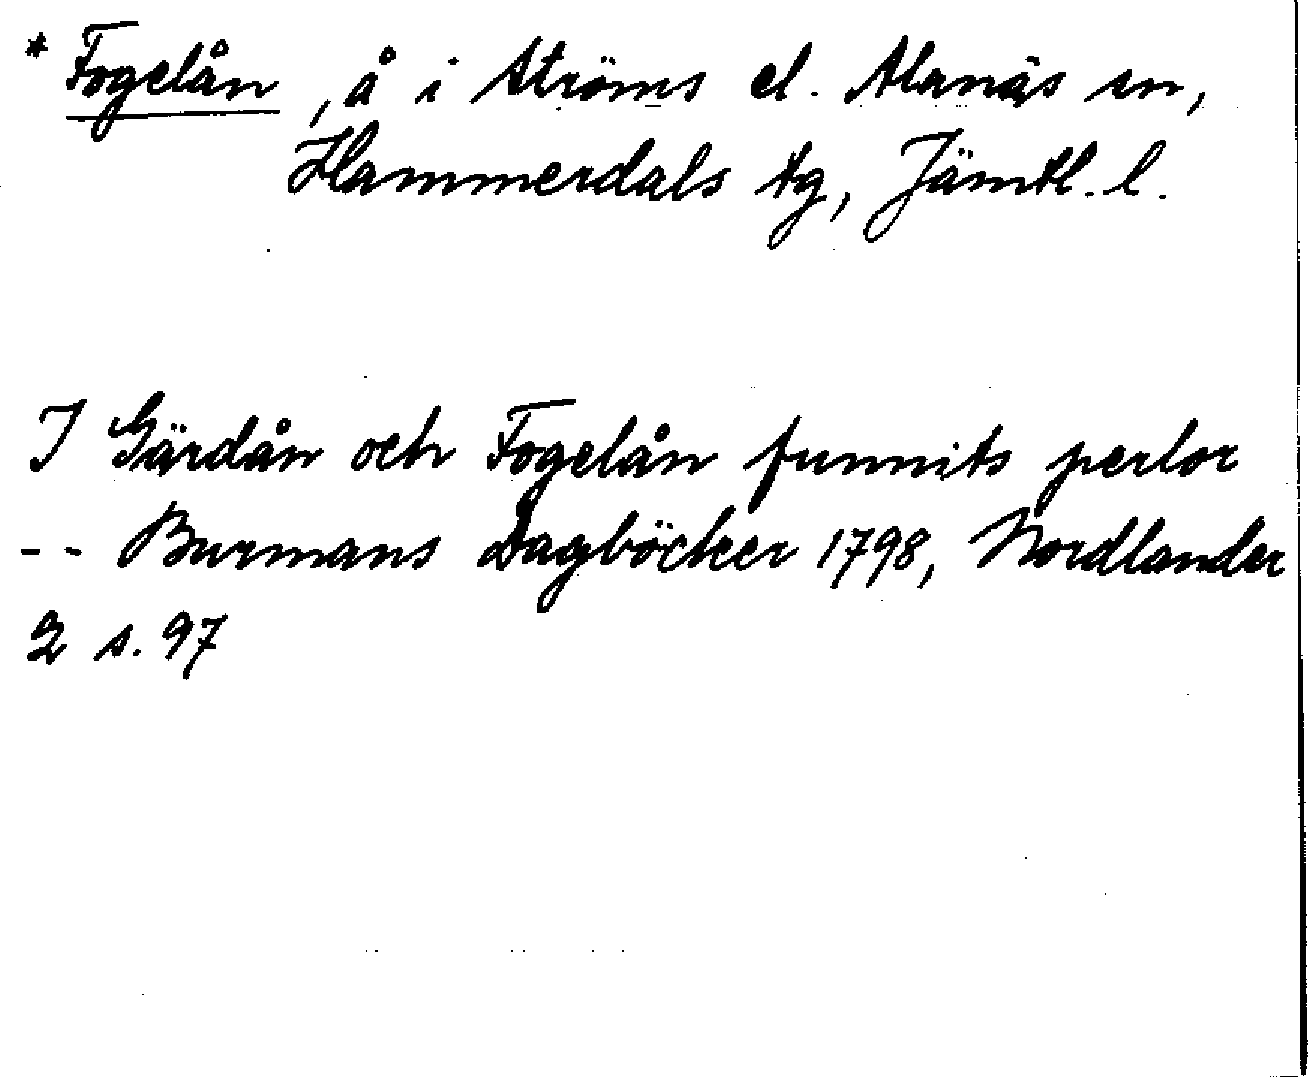 * Fogelån, å i Ströms el. Alanäs sn,
Hammerdals tg, Jämtl. l.
I Gärdån och Fogelån funnits perlor
-- Burmans Dagböcker 1798, Nordlander
2 s. 97